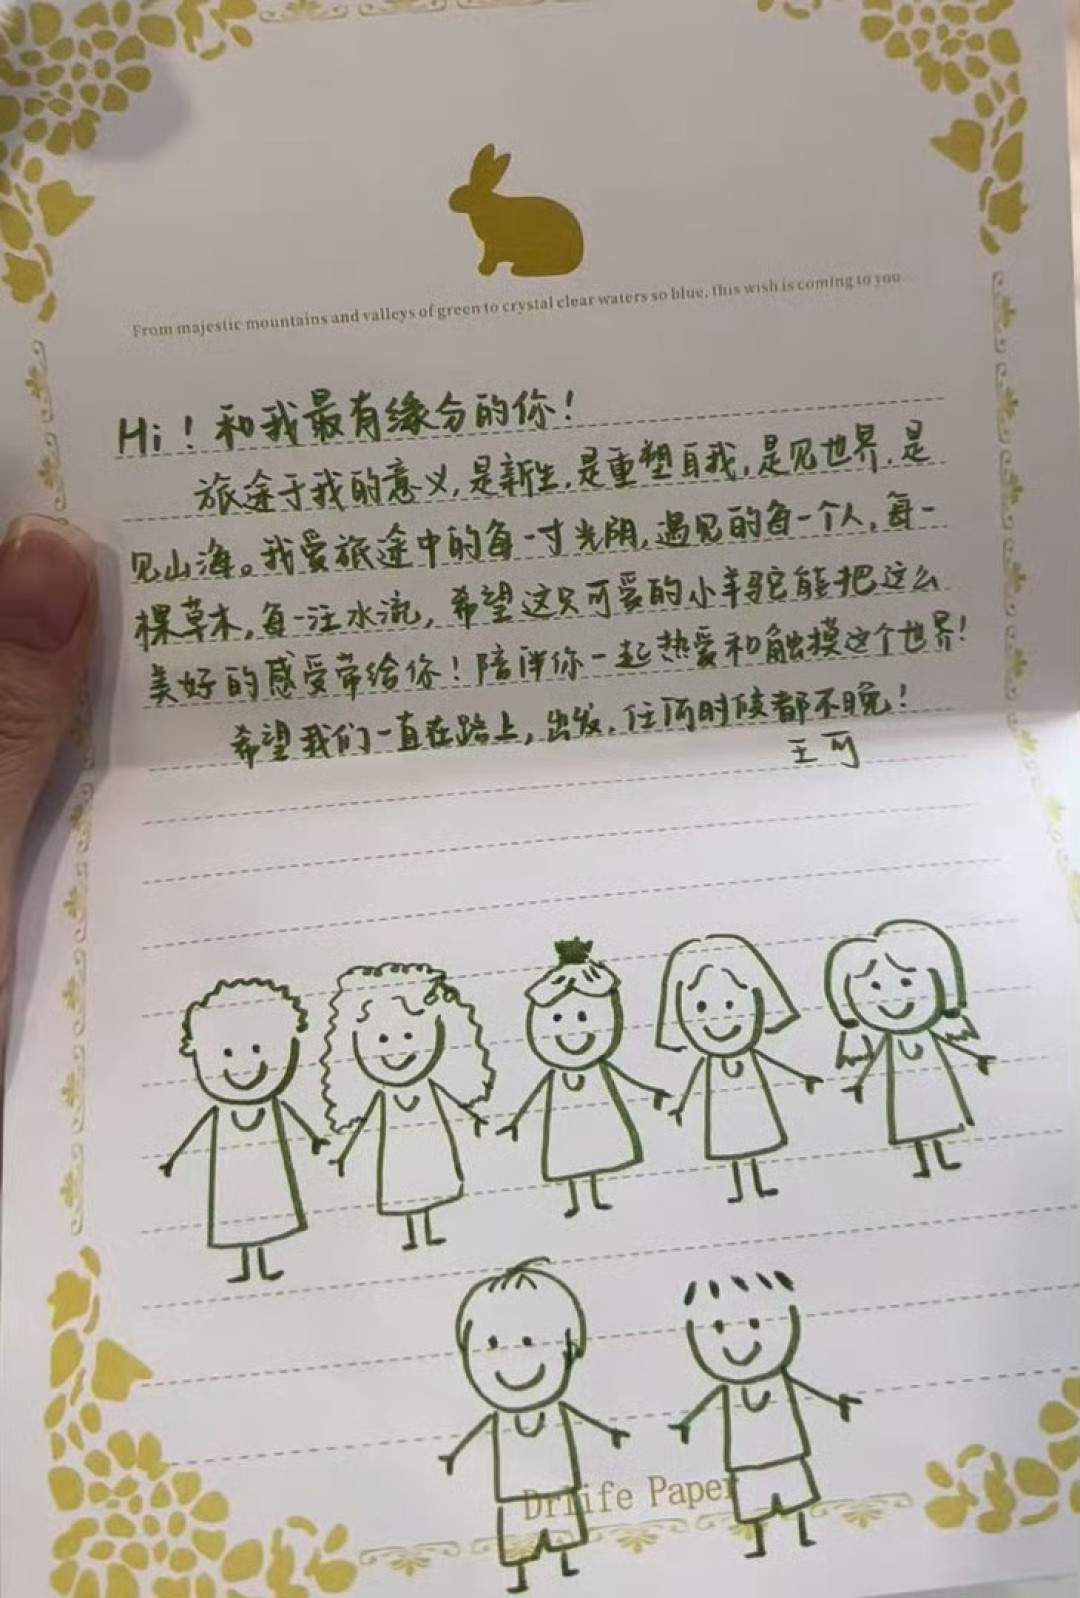 From majestic mountains and valleys of green to crystal clear waters so blue, this wish is coming to you.
Hi！和我最有缘分的你！
旅途于我的意义，是新生，是重塑自我，是见世界，是
见山海。我爱旅途中的每一寸光阴，遇见的每一个人，每一
棵草木，每一注水流，希望这只可爱的小羊驼能把这么
美好的感受带给你！陪伴你一起热爱和触摸这个世界！
希望我们一直在路上，出发，任何时候都不晚！
王可
DrLife Paper